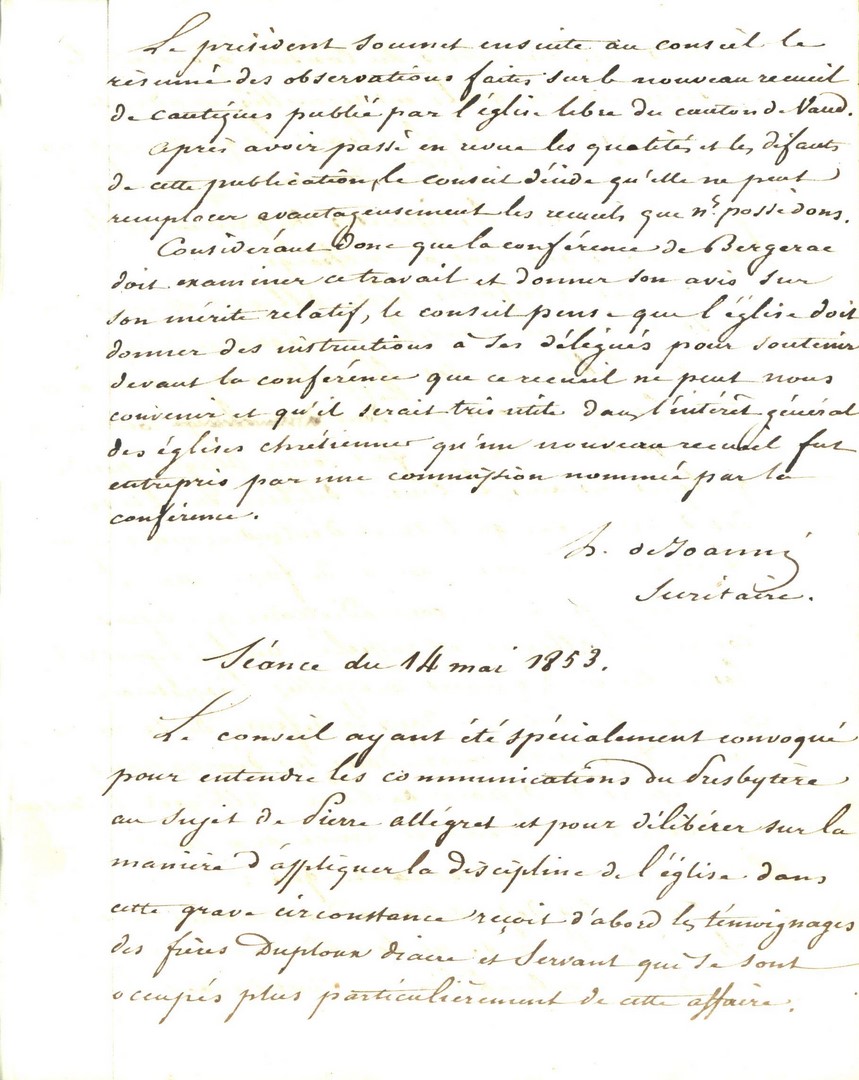 Le président soumet ensuite au conseil le
résumé des observations faites sur le nouveau recueil
de cantiques publié par l'église libre du canton de Vaud.
Après avoir passé en revue les qualités et les défauts
de cette publication, le conseil décide qu'elle ne peut
remplacer avantageusement les recueils que ns possédons.
Considérant donc que la conférence de Bergerac
doit examiner ce travail et donner son avis sur
son mérite relatif, le conseil pense que l'église doit
donner des instructions à ses délégués pour soutenir
devant la conférence que ce recueil ne peut nous
convenir et qu'il serait très utile dans l'intérêt général
des églises chrétiennes qu'un nouveau recueil fut
entrepris par une commission nommée par la
conférence.
h. de Joannis
Secrétaire.
Séance du 14 mai 1853.
Le conseil ayant été spécialement convoqué
pour entendre les communications du Presbytère
au sujet de Pierre allégret et pour délibérer sur la
manière d'appliquer la discipline de l'église dans
cette grave circonstance reçoit d'abord les témoignages
des frères Duploux diacre et Servant qui se sont
occupés plus particulièrement de cette affaire.